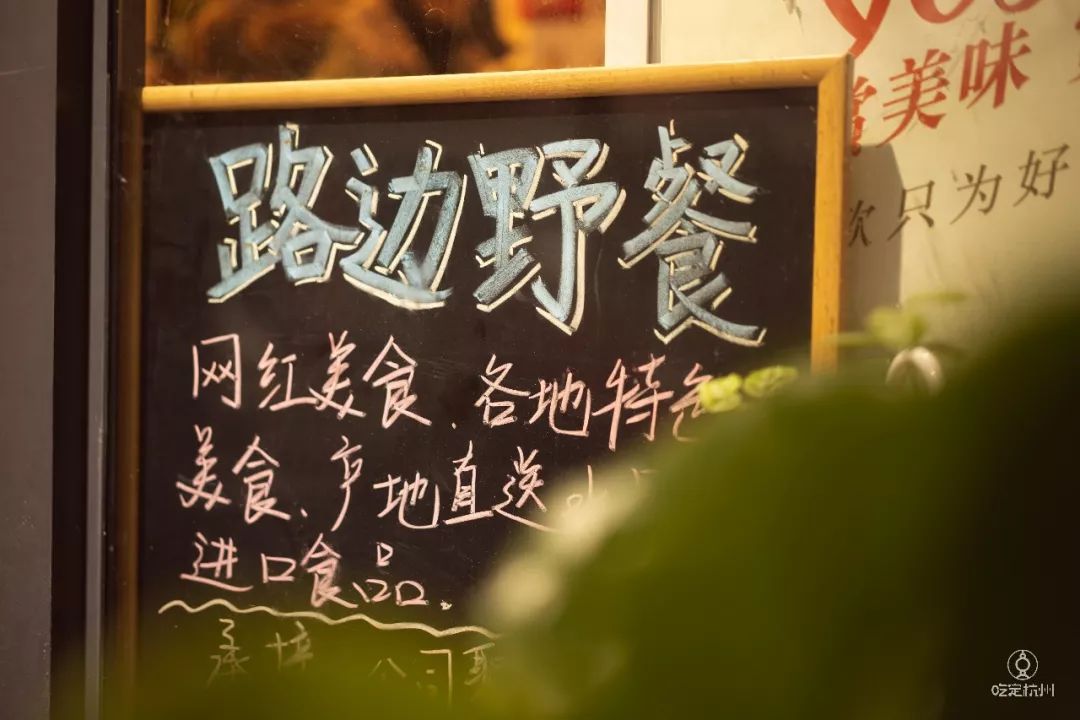 路边野餐
网红美食、各地特色
美食、产地直送
进口食品.
承接 公司聚
美味
次只为好
吃定杭州